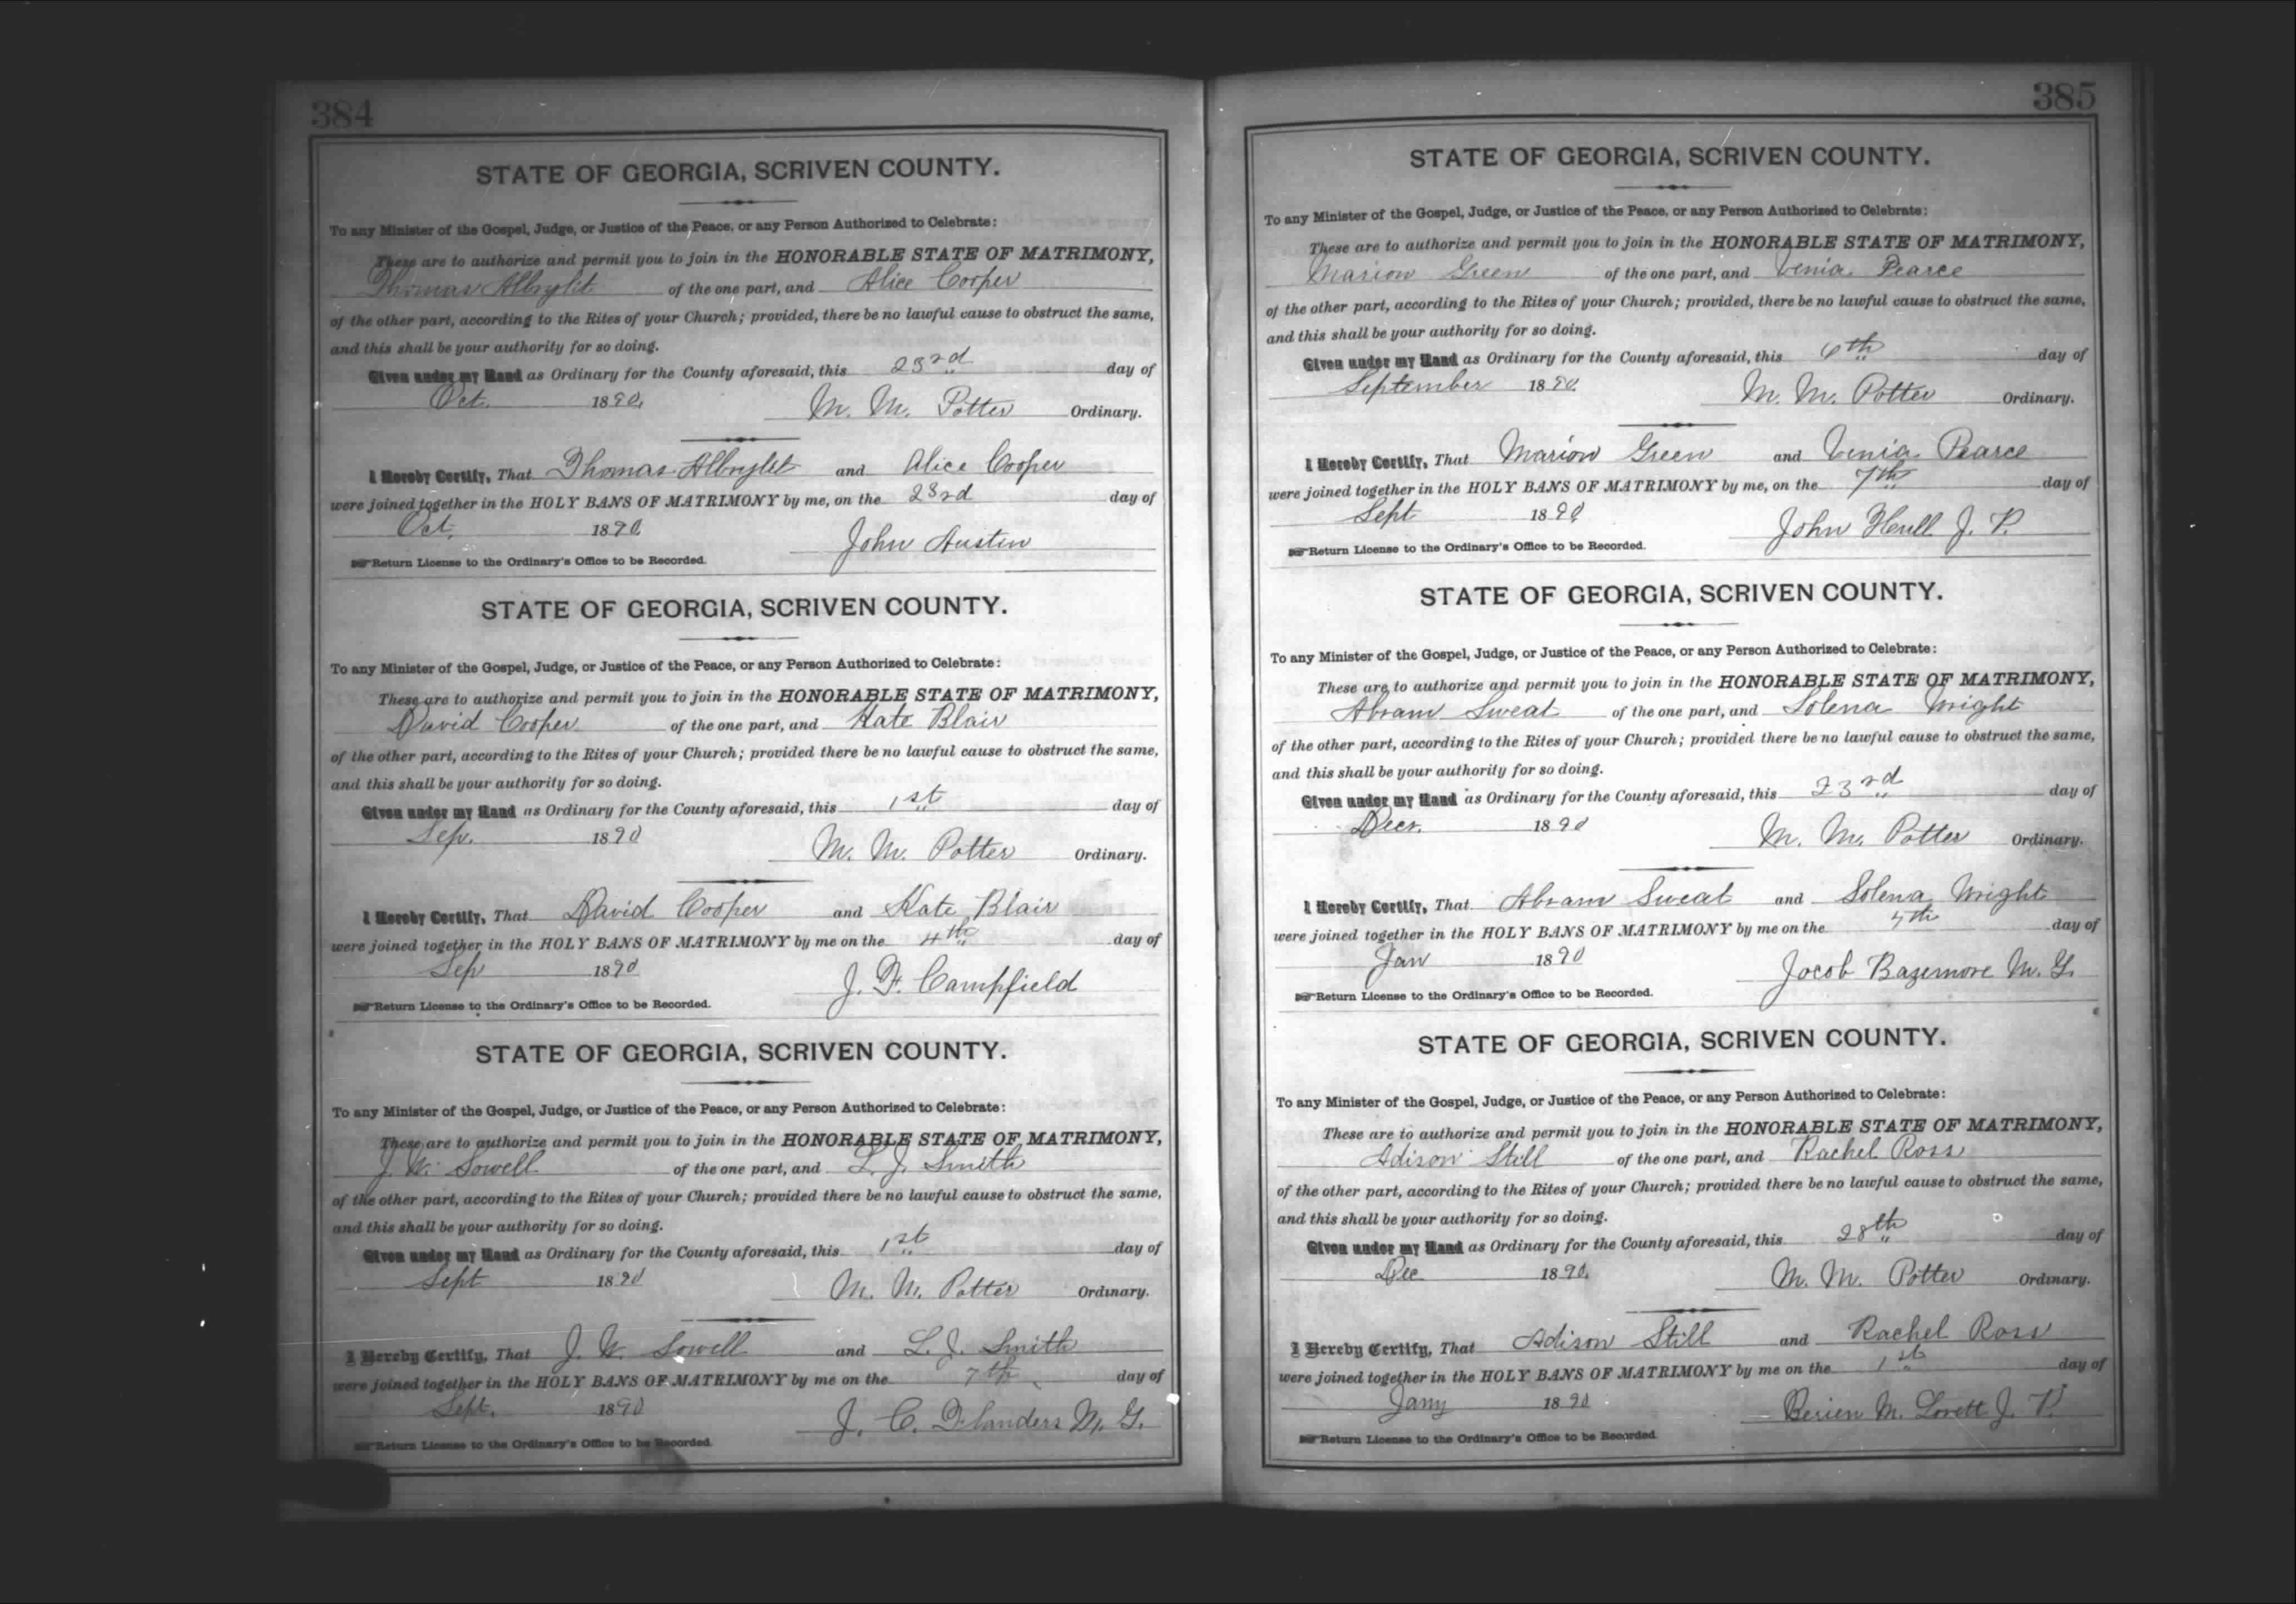 384
STATE OF GEORGIA, SCRIVEN COUNTY.
To any Minister of the Gospel, Judge, or Justice of the Peace, or any Person Authorized to Celebrate:
These are to authorize and permit you to join in the HONORABLE STATE OF MATRIMONY,
Thomas Albright of the one part, and Alice Cooper
of the other part, according to the Rites of your Church; provided, there be no lawful cause to obstruct the same,
and this shall be your authority for so doing.
Given under my Hand as Ordinary for the County aforesaid, this 23rd day of
Oct. 1890. M. M. Potter Ordinary.
I Hereby Certify, That Thomas Albright and Alice Cooper
were joined together in the HOLY BANS OF MATRIMONY by me, on the 23rd day of
Oct. 1890. John Austin
Return License to the Ordinary's Office to be Recorded.
STATE OF GEORGIA, SCRIVEN COUNTY.
To any Minister of the Gospel, Judge, or Justice of the Peace, or any Person Authorized to Celebrate:
These are to authorize and permit you to join in the HONORABLE STATE OF MATRIMONY,
David Cooper of the one part, and Kate Blair
of the other part, according to the Rites of your Church; provided there be no lawful cause to obstruct the same,
and this shall be your authority for so doing.
Given under my Hand as Ordinary for the County aforesaid, this 1st day of
Sep. 1890 M. M. Potter Ordinary.
I Hereby Certify, That David Cooper and Kate Blair
were joined together in the HOLY BANS OF MATRIMONY by me on the 4th day of
Sep 1890 J. F. Campfield
Return License to the Ordinary's Office to be Recorded.
STATE OF GEORGIA, SCRIVEN COUNTY.
To any Minister of the Gospel, Judge, or Justice of the Peace, or any Person Authorized to Celebrate:
These are to authorize and permit you to join in the HONORABLE STATE OF MATRIMONY,
J. W. Sowell of the one part, and L. J. Smith
of the other part, according to the Rites of your Church; provided there be no lawful cause to obstruct the same,
and this shall be your authority for so doing.
Given under my Hand as Ordinary for the County aforesaid, this 1st day of
Sept 1890 M. M. Potter Ordinary.
I Hereby Certify, That J. W. Sowell and L. J. Smith
were joined together in the HOLY BANS OF MATRIMONY by me on the 7th day of
Sept. 1890 J. C. Flanders M. G.
Return License to the Ordinary's Office to be Recorded.
385
STATE OF GEORGIA, SCRIVEN COUNTY.
To any Minister of the Gospel, Judge, or Justice of the Peace, or any Person Authorized to Celebrate:
These are to authorize and permit you to join in the HONORABLE STATE OF MATRIMONY,
Marion Green of the one part, and Venia Pearce
of the other part, according to the Rites of your Church; provided, there be no lawful cause to obstruct the same,
and this shall be your authority for so doing.
Given under my Hand as Ordinary for the County aforesaid, this 6th day of
September 1890. M. M. Potter Ordinary.
I Hereby Certify, That Marion Green and Venia Pearce
were joined together in the HOLY BANS OF MATRIMONY by me, on the 7th day of
Sept 1890 John J. P.
Return License to the Ordinary's Office to be Recorded.
STATE OF GEORGIA, SCRIVEN COUNTY.
To any Minister of the Gospel, Judge, or Justice of the Peace, or any Person Authorized to Celebrate:
These are to authorize and permit you to join in the HONORABLE STATE OF MATRIMONY,
Abram Sweat of the one part, and Solena Wright
of the other part, according to the Rites of your Church; provided there be no lawful cause to obstruct the same,
and this shall be your authority for so doing.
Given under my Hand as Ordinary for the County aforesaid, this 23rd day of
Decr. 1890 M. M. Potter Ordinary.
I Hereby Certify, That Abram Sweat and Solena Wright
were joined together in the HOLY BANS OF MATRIMONY by me on the day of
Jan 1890 Jacob Bazemore M. G.
Return License to the Ordinary's Office to be Recorded.
STATE OF GEORGIA, SCRIVEN COUNTY.
To any Minister of the Gospel, Judge, or Justice of the Peace, or any Person Authorized to Celebrate:
These are to authorize and permit you to join in the HONORABLE STATE OF MATRIMONY,
Adison Still of the one part, and Rachel Ross
of the other part, according to the Rites of your Church; provided there be no lawful cause to obstruct the same,
and this shall be your authority for so doing.
Given under my Hand as Ordinary for the County aforesaid, this 28th day of
Dec 1890. M. M. Potter Ordinary.
I Hereby Certify, That Adison Still and Rachel Ross
were joined together in the HOLY BANS OF MATRIMONY by me on the 1st day of
Jany 1890 Berien M. Lovett J. P.
Return License to the Ordinary's Office to be Recorded.